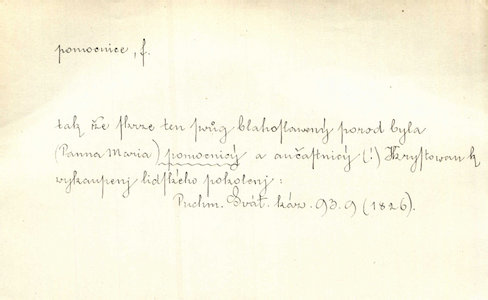 pomocnice, f.
tak že skrze ten swůg blahoslawný porod byla
(Panna Maria) pomocnicý a aučastnicý (!) Krystowau k
wykaupenj lidského pokolenj:
Puchm. Svát. káz. 93.9 (1826).